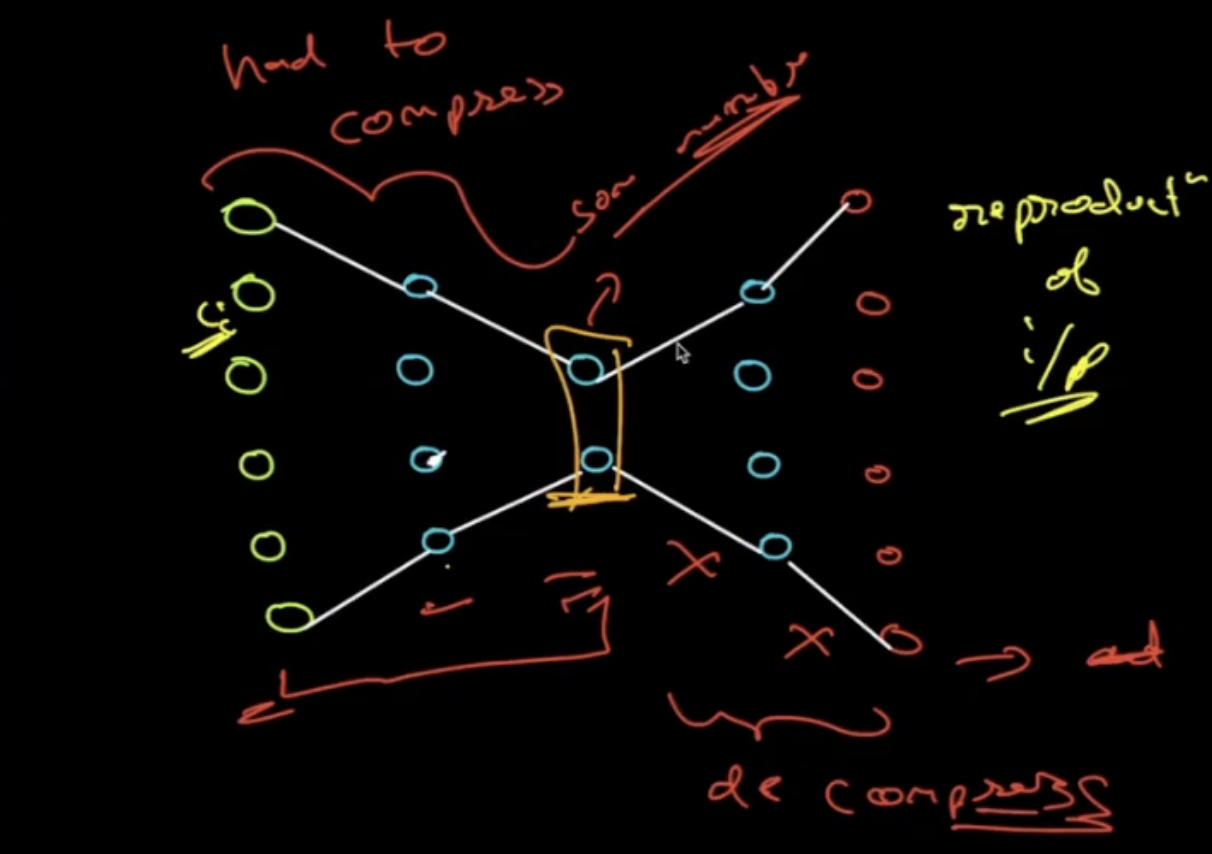 had to
compress
som
numbr
reproductn
of
i/p
de compress